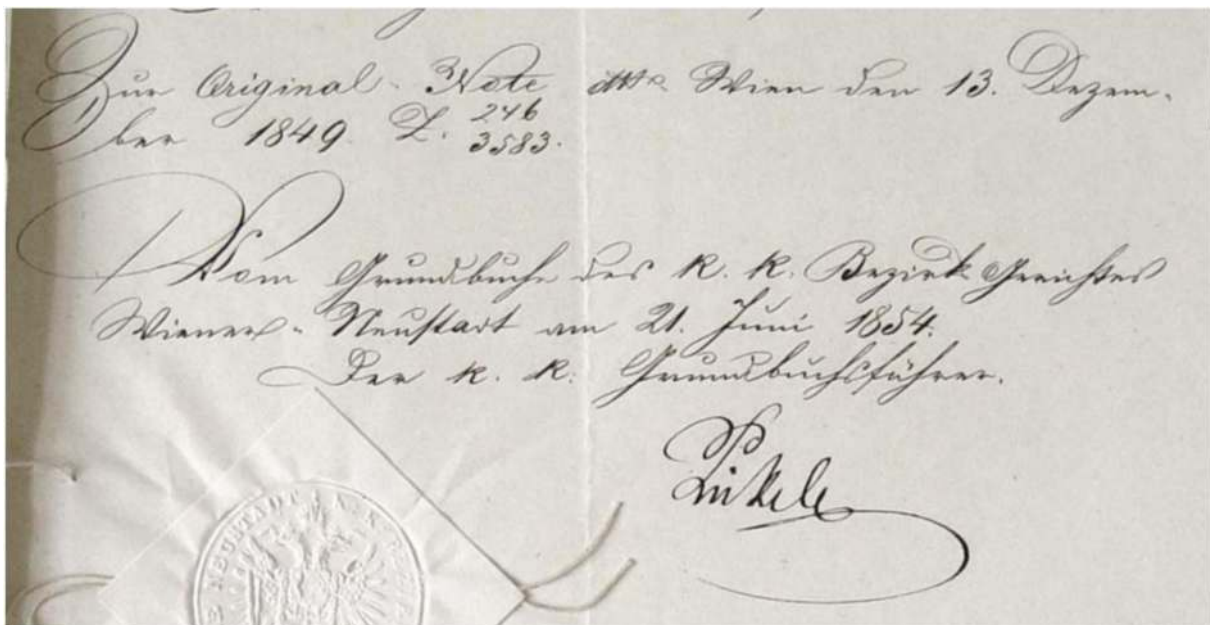 Zur Original-Note ddto Wien den 13. Dezem-
ber 1849. Z. 246
3583.
Vom Grundbuche des k. k. Bezirk Gerichtes
Wiener-Neustadt am 21. Juni 1854.
Der k. k. Grundbuchsführer.
NEUSTADT